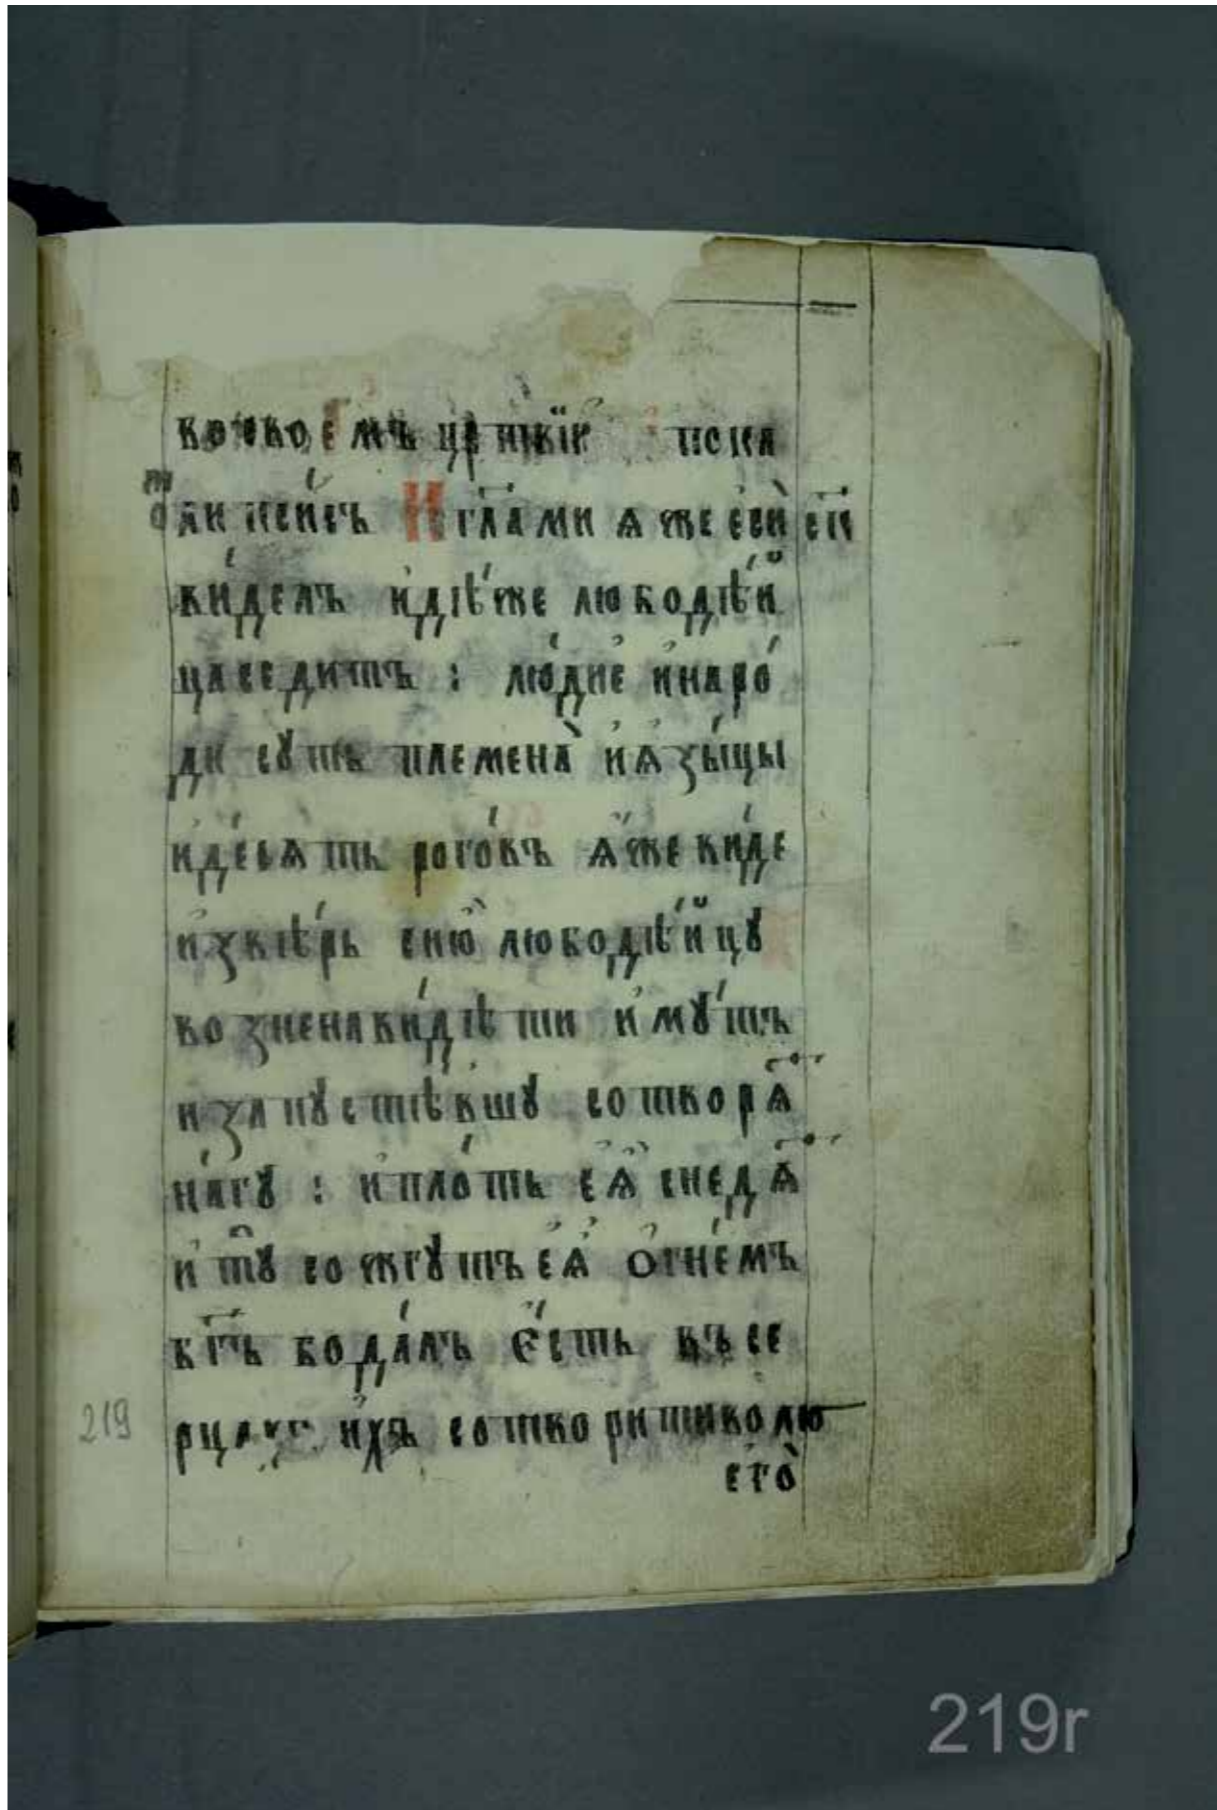 во своемъ
виделъ идѣ́же любодѣ́й
ца седитъ : лю́дие́ и҆наро́
ди сꙋть племена̀ и҆ꙗ҆зы́цы
и҆де́сѧть рого́въ ѧ҆́же ви́де
и҆ звѣ́рь сию̀ любодѣ́йцꙋ
возненави́дѣти и҆мꙋ́тъ
и запꙋстѣ́вшꙋ сотворѧ̀
на́гꙋ : и҆ пло́ть еѧ̀ снедѧ̀
и҆ тꙋ̀ сожгꙋтъ еѧ̀ ѻ҆гне́мъ
бг҃ъ бо да́лъ є҆́сть въ се
и҆́хъ сотворити волю
его̀
219
219r